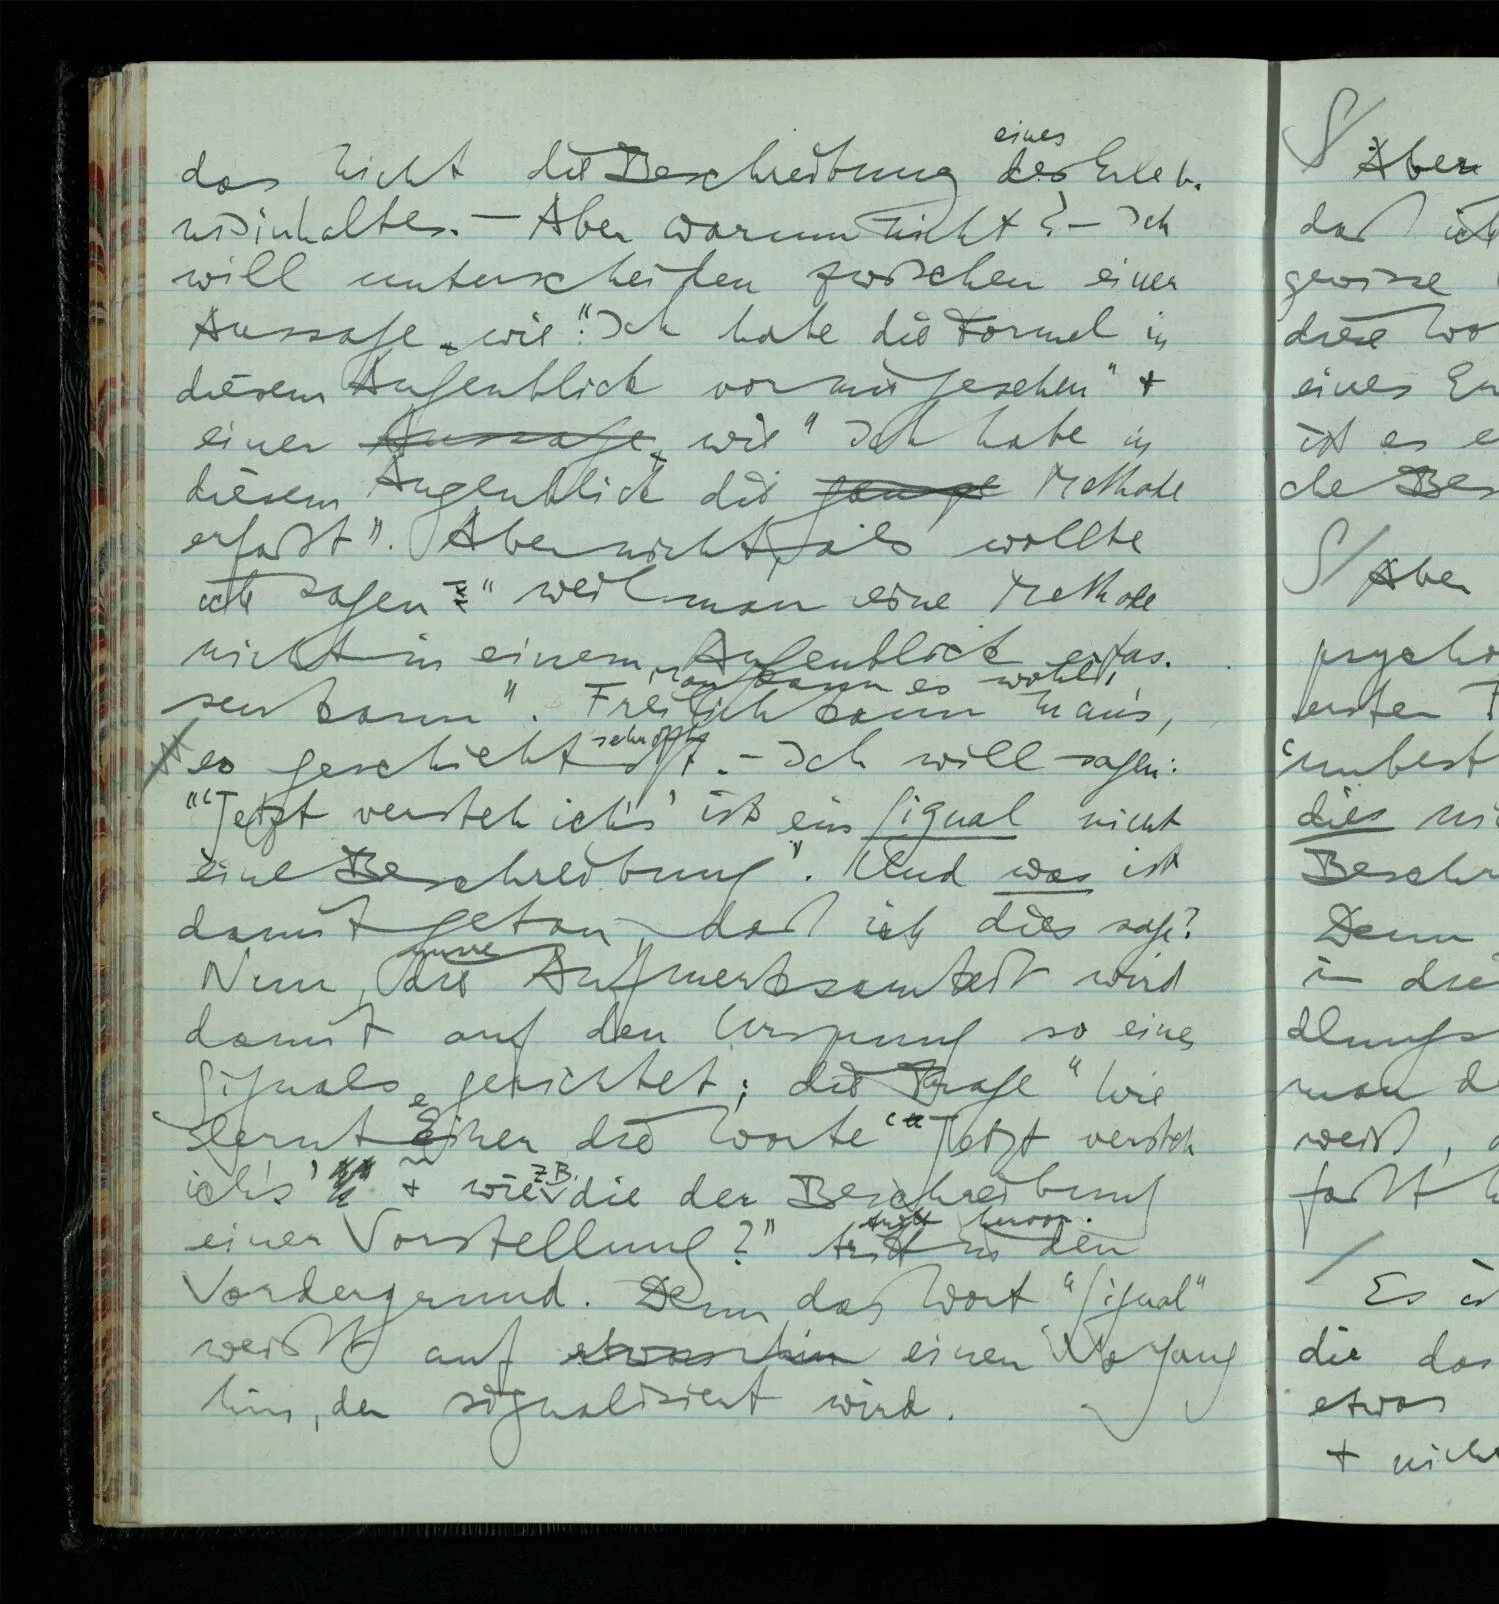 das nicht die Beschreibung des Erleb-
eines
nisinhaltes. – Aber warum nicht? – Ich
will unterscheiden zwischen einer
Aussage, wie: "Ich habe die Formel in
diesem Augenblick vor mir gesehen" +
einer Aussage, wie "Ich habe in
diesem Augenblick die ganze Methode
erfaßt". Aber nicht, als wollte
ich sagen: "weil man eine Methode
nicht in einem Augenblick erfas-
sen kann". Freilich kann man's,
Man kann es wohl,
es geschieht oft. – Ich will sagen:
sehr oft
"'Jetzt versteh ich's' ist ein Signal nicht
eine Beschreibung". Und was ist
damit getan, daß ich dies sage?
Nun, die Aufmerksamkeit wird
unsre
damit auf den Ursprung so eines
Signals gerichtet; die Frage "Wie
lernt Einer die Worte 'Jetzt versteh
ich's' + wie z.B. die der Beschreibung
einer Vorstellung?" tritt in den
tritt hervor.
Vordergrund. Denn das Wort "Signal"
weist auf etwas hin einen Vorgang
hin, der signalisiert wird.
Aber
daß ich
gewisse
diese Wo
eines
ist es e
che Bes
Aber
psycho
ersten
unbest
dies ni
Beschr
Denn
in die
dlungs
man d
weiß,
faßt
Es is
die das
etwas
+ nich